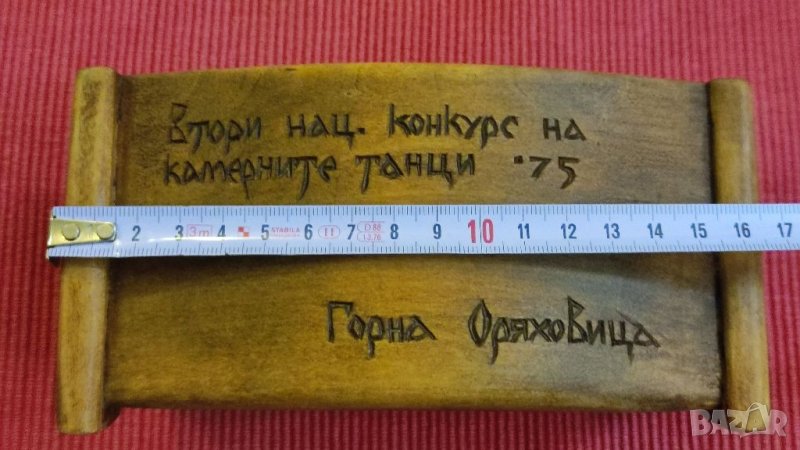 Втори нац. конкурс на
камерните танци '75
2 3 3m 4 5 STABILA 6 II 7 8 9 10 11 12 13 14 15 16 17
Горна Оряховица
BAZAR